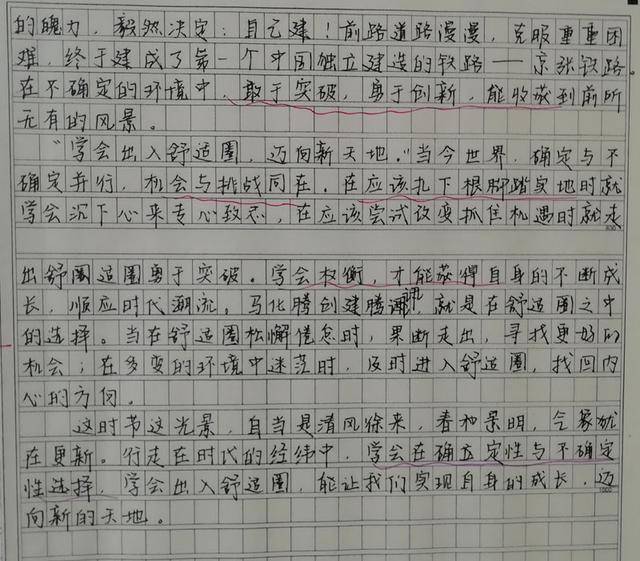 的魄力，毅然决定：自己建！前路道路漫漫，克服重重困
难，终于建成了第一个中国独立建造的铁路——京张铁路。
在不确定的环境中，敢于突破，勇于创新，能收获到前所
无有的风景。
“学会出入舒适圈，迈向新天地。”当今世界，确定与不
确定并行，机会与挑战同在。在应该扎下根脚踏实地时就
学会沉下心来专心致志，在应该尝试改变抓住机遇时就走
800
出舒圈适圈勇于突破。学会权衡，才能获得自身的不断成
长，顺应时代潮流。马化腾创建腾讯，就是在舒适圈之中
的选择。当在舒适圈松懈倦怠时，果断走出，寻找更好的
机会；在多变的环境中迷茫时，及时进入舒适圈，找回内
心的方向。
这时节这光景，自当是清风徐来，春和景明，气象就
在更新。行走在时代的经纬中，学会在确立定性与不确定
性选择，学会出入舒适圈，能让我们实现自身的成长，迈
1000
向新的天地。